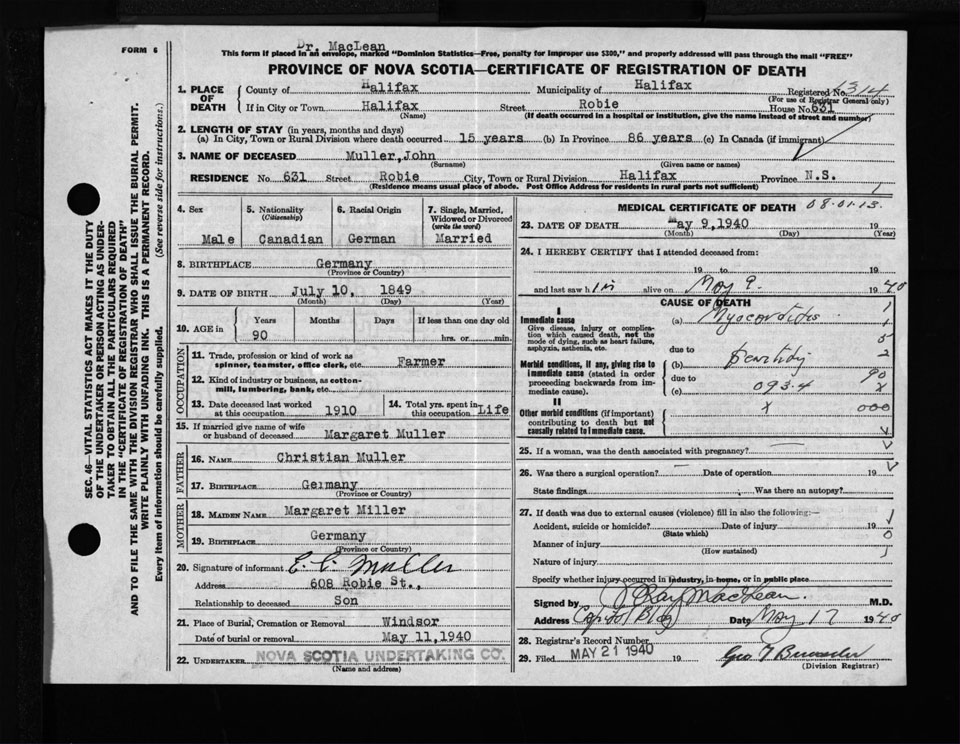 Dr. MacLean
FORM 6
This form if placed in an envelope, marked "Dominion Statistics—Free, penalty for improper use $300," and properly addressed will pass through the mail "FREE"
PROVINCE OF NOVA SCOTIA—CERTIFICATE OF REGISTRATION OF DEATH
1. PLACE OF DEATH
County of Halifax Municipality of Halifax Registered No. 1314
(For use of Registrar General only)
If in City or Town Halifax Street Robie House No. 631
(Name) (If death occurred in a hospital or institution, give the name instead of street and number)
2. LENGTH OF STAY (in years, months and days)
(a) In City, Town or Rural Division where death occurred 15 years (b) In Province 86 years (c) In Canada (if immigrant)
3. NAME OF DECEASED Muller, John
(Surname) (Given name or names)
RESIDENCE No. 631 Street Robie City, Town or Rural Division Halifax Province N.S.
(Residence means usual place of abode. Post Office Address for residents in rural parts not sufficient) 1
4. Sex
Male
5. Nationality
(Citizenship)
Canadian
6. Racial Origin
German
7. Single, Married, Widowed or Divorced
(write the word)
Married
8. BIRTHPLACE Germany
(Province or Country)
9. DATE OF BIRTH July 10, 1849
(Month) (Day) (Year)
10. AGE in Years Months Days If less than one day old
90 hrs. or min.
OCCUPATION
11. Trade, profession or kind of work as
spinner, teamster, office clerk, etc. Farmer
12. Kind of industry or business, as cotton-
mill, lumbering, bank, etc.
13. Date deceased last worked
at this occupation 1910
14. Total yrs. spent in
this occupation Life
15. If married give name of wife
or husband of deceased Margaret Muller
FATHER
16. NAME Christian Muller
17. BIRTHPLACE Germany
(Province or Country)
MOTHER
18. MAIDEN NAME Margaret Miller
19. BIRTHPLACE Germany
(Province or Country)
20. Signature of informant E. C. Muller
Address 608 Robie St.,
Relationship to deceased Son
21. Place of Burial, Cremation or Removal Windsor
Date of burial or removal May 11, 1940
22. UNDERTAKER NOVA SCOTIA UNDERTAKING CO.
(Name and address)
MEDICAL CERTIFICATE OF DEATH 08.01.13.
23. DATE OF DEATH May 9, 1940 19
(Month) (Day) (Year)
24. I HEREBY CERTIFY that I attended deceased from:
19 to 19
and last saw h im alive on May 9. 19 40
CAUSE OF DEATH
I
Immediate cause
Give disease, injury or complica-
tion which caused death, not the
mode of dying, such as heart failure,
asphyxia, asthenia, etc.
(a) Myocarditis
due to
Morbid conditions, if any, giving rise to
immediate cause (stated in order
proceeding backwards from im-
mediate cause).
(b)
due to
(c) 093.4
90
x
II
Other morbid conditions (if important)
contributing to death but not
causally related to immediate cause.
x 000
25. If a woman, was the death associated with pregnancy?
26. Was there a surgical operation? Date of operation 19
State findings Was there an autopsy?
27. If death was due to external causes (violence) fill in also the following:—
Accident, suicide or homicide? Date of injury 19
(State which)
Manner of injury
(How sustained)
Nature of injury
Specify whether injury occurred in industry, in home, or in public place
Signed by J Ray MacLean. M.D.
Address Capitol Bldg Date May 17 19 40
28. Registrar's Record Number
29. Filed MAY 21 1940 19
(Division Registrar)
SEC. 46—VITAL STATISTICS ACT MAKES IT THE DUTY
OF THE UNDERTAKER OR PERSON ACTING AS UNDER-
TAKER TO OBTAIN ALL THE PARTICULARS REQUIRED
IN THE "CERTIFICATE OF REGISTRATION OF DEATH"
AND TO FILE THE SAME WITH THE DIVISION REGISTRAR WHO SHALL ISSUE THE BURIAL PERMIT.
WRITE PLAINLY WITH UNFADING INK. THIS IS A PERMANENT RECORD.
Every item of Information should be carefully supplied. (See reverse side for instructions.)